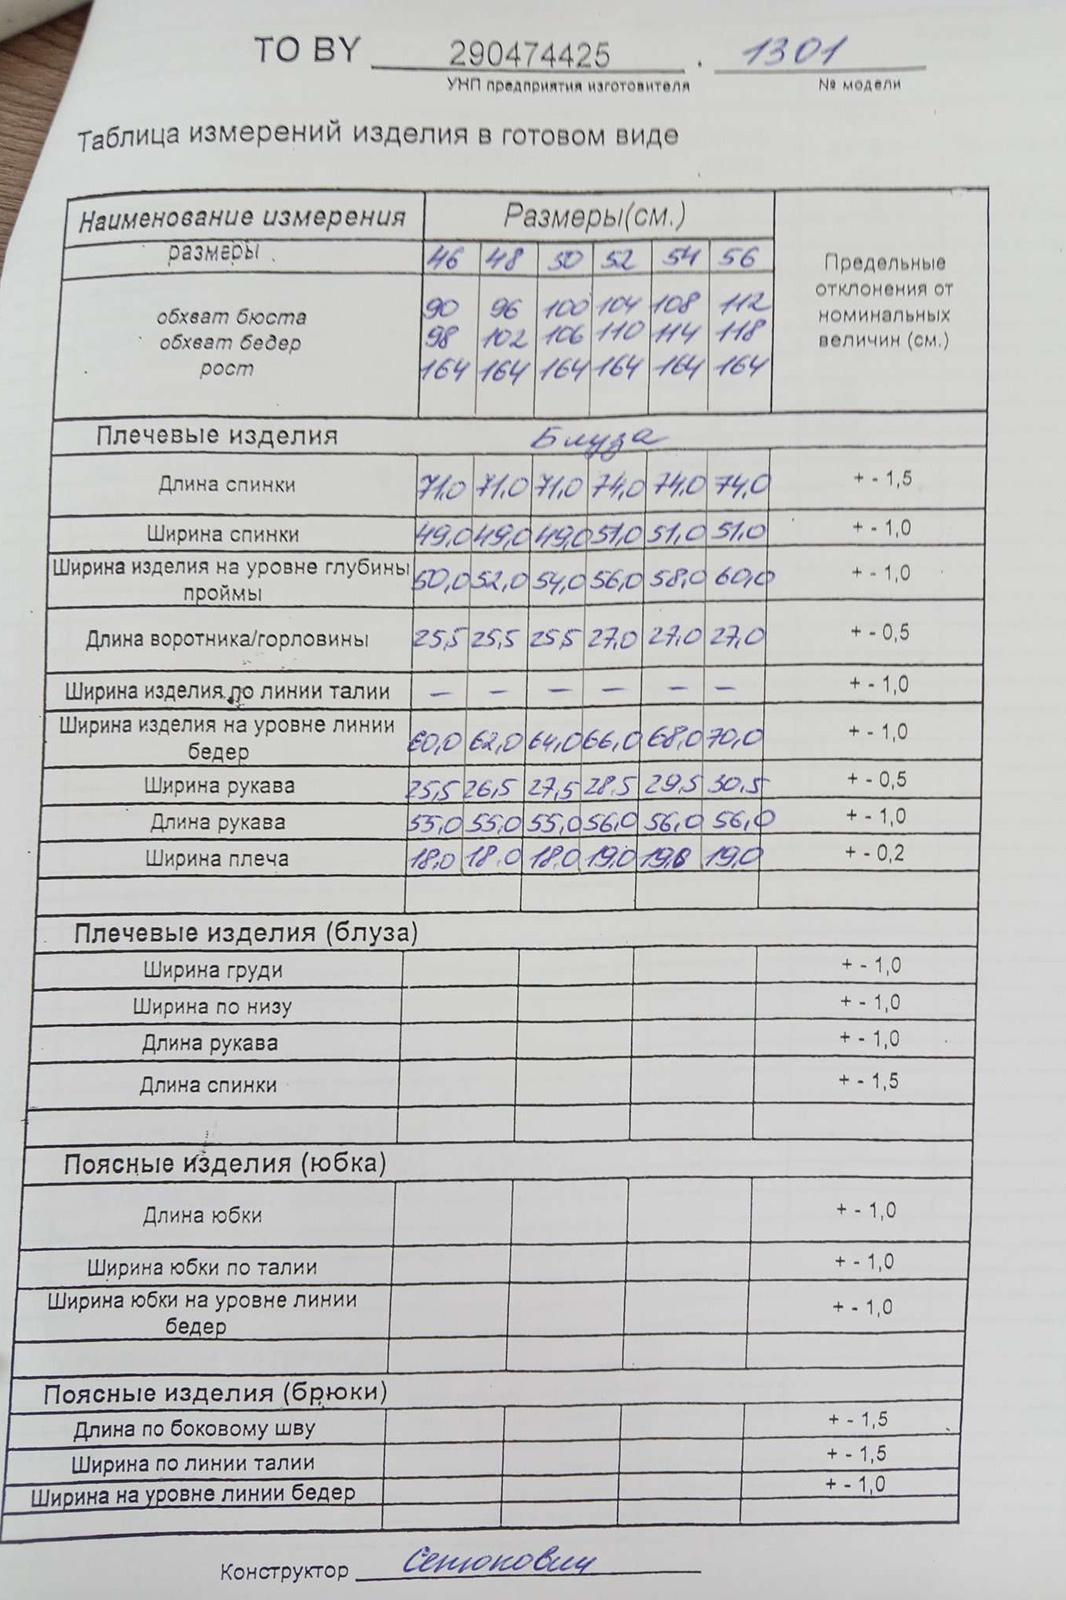 ТО BY 290474425 . 1301
УНП предприятия изготовителя № модели
Таблица измерений изделия в готовом виде
Наименование измерения Размеры(см.) Предельные отклонения от номинальных величин (см.)
размеры 46 48 50 52 54 56
обхват бюста 90 96 100 104 108 112
обхват бедер 98 102 106 110 114 118
рост 164 164 164 164 164 164
Плечевые изделия Блуза
Длина спинки 71,0 71,0 71,0 74,0 74,0 74,0 + - 1,5
Ширина спинки 49,0 49,0 49,0 51,0 51,0 51,0 + - 1,0
Ширина изделия на уровне глубины проймы 50,0 52,0 54,0 56,0 58,0 60,0 + - 1,0
Длина воротника/горловины 25,5 25,5 25,5 27,0 27,0 27,0 + - 0,5
Ширина изделия по линии талии – – – – – – + - 1,0
Ширина изделия на уровне линии бедер 60,0 62,0 64,0 66,0 68,0 70,0 + - 1,0
Ширина рукава 25,5 26,5 27,5 28,5 29,5 30,5 + - 0,5
Длина рукава 55,0 55,0 55,0 56,0 56,0 56,0 + - 1,0
Ширина плеча 18,0 18,0 18,0 19,0 19,0 19,0 + - 0,2
Плечевые изделия (блуза)
Ширина груди + - 1,0
Ширина по низу + - 1,0
Длина рукава + - 1,0
Длина спинки + - 1,5
Поясные изделия (юбка)
Длина юбки + - 1,0
Ширина юбки по талии + - 1,0
Ширина юбки на уровне линии бедер + - 1,0
Поясные изделия (брюки)
Длина по боковому шву + - 1,5
Ширина по линии талии + - 1,5
Ширина на уровне линии бедер + - 1,0
Конструктор